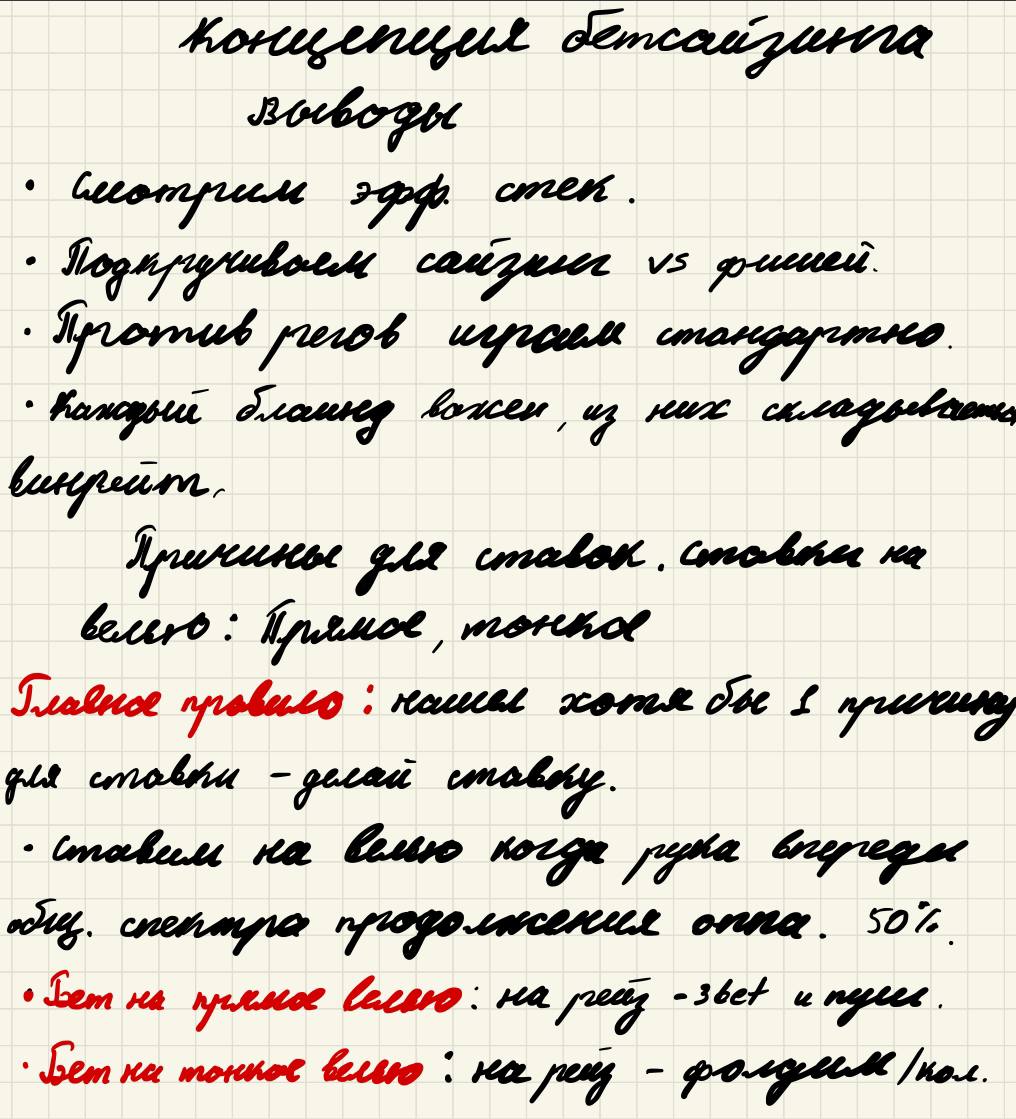 Концепция бетсайзинга
Выводы
• Смотрим эфф. стек.
• Подкручиваем сайзинг vs фишей.
• Против регов играем стандартно.
• Каждый блаинд важен, из них складывается
винрейт.
Причины для ставок. Ставки на
велью: Прямое, тонкое
Главное правило: нашел хотя бы 1 причину
для ставки - делай ставку.
• Ставим на велью когда рука впереди
общ. спектра продолжения оппа. 50%.
• Бет на прямое велью: на рейз - 3bet и пуш.
• Бет на тонкое велью: на рейз - фолдим/кол.